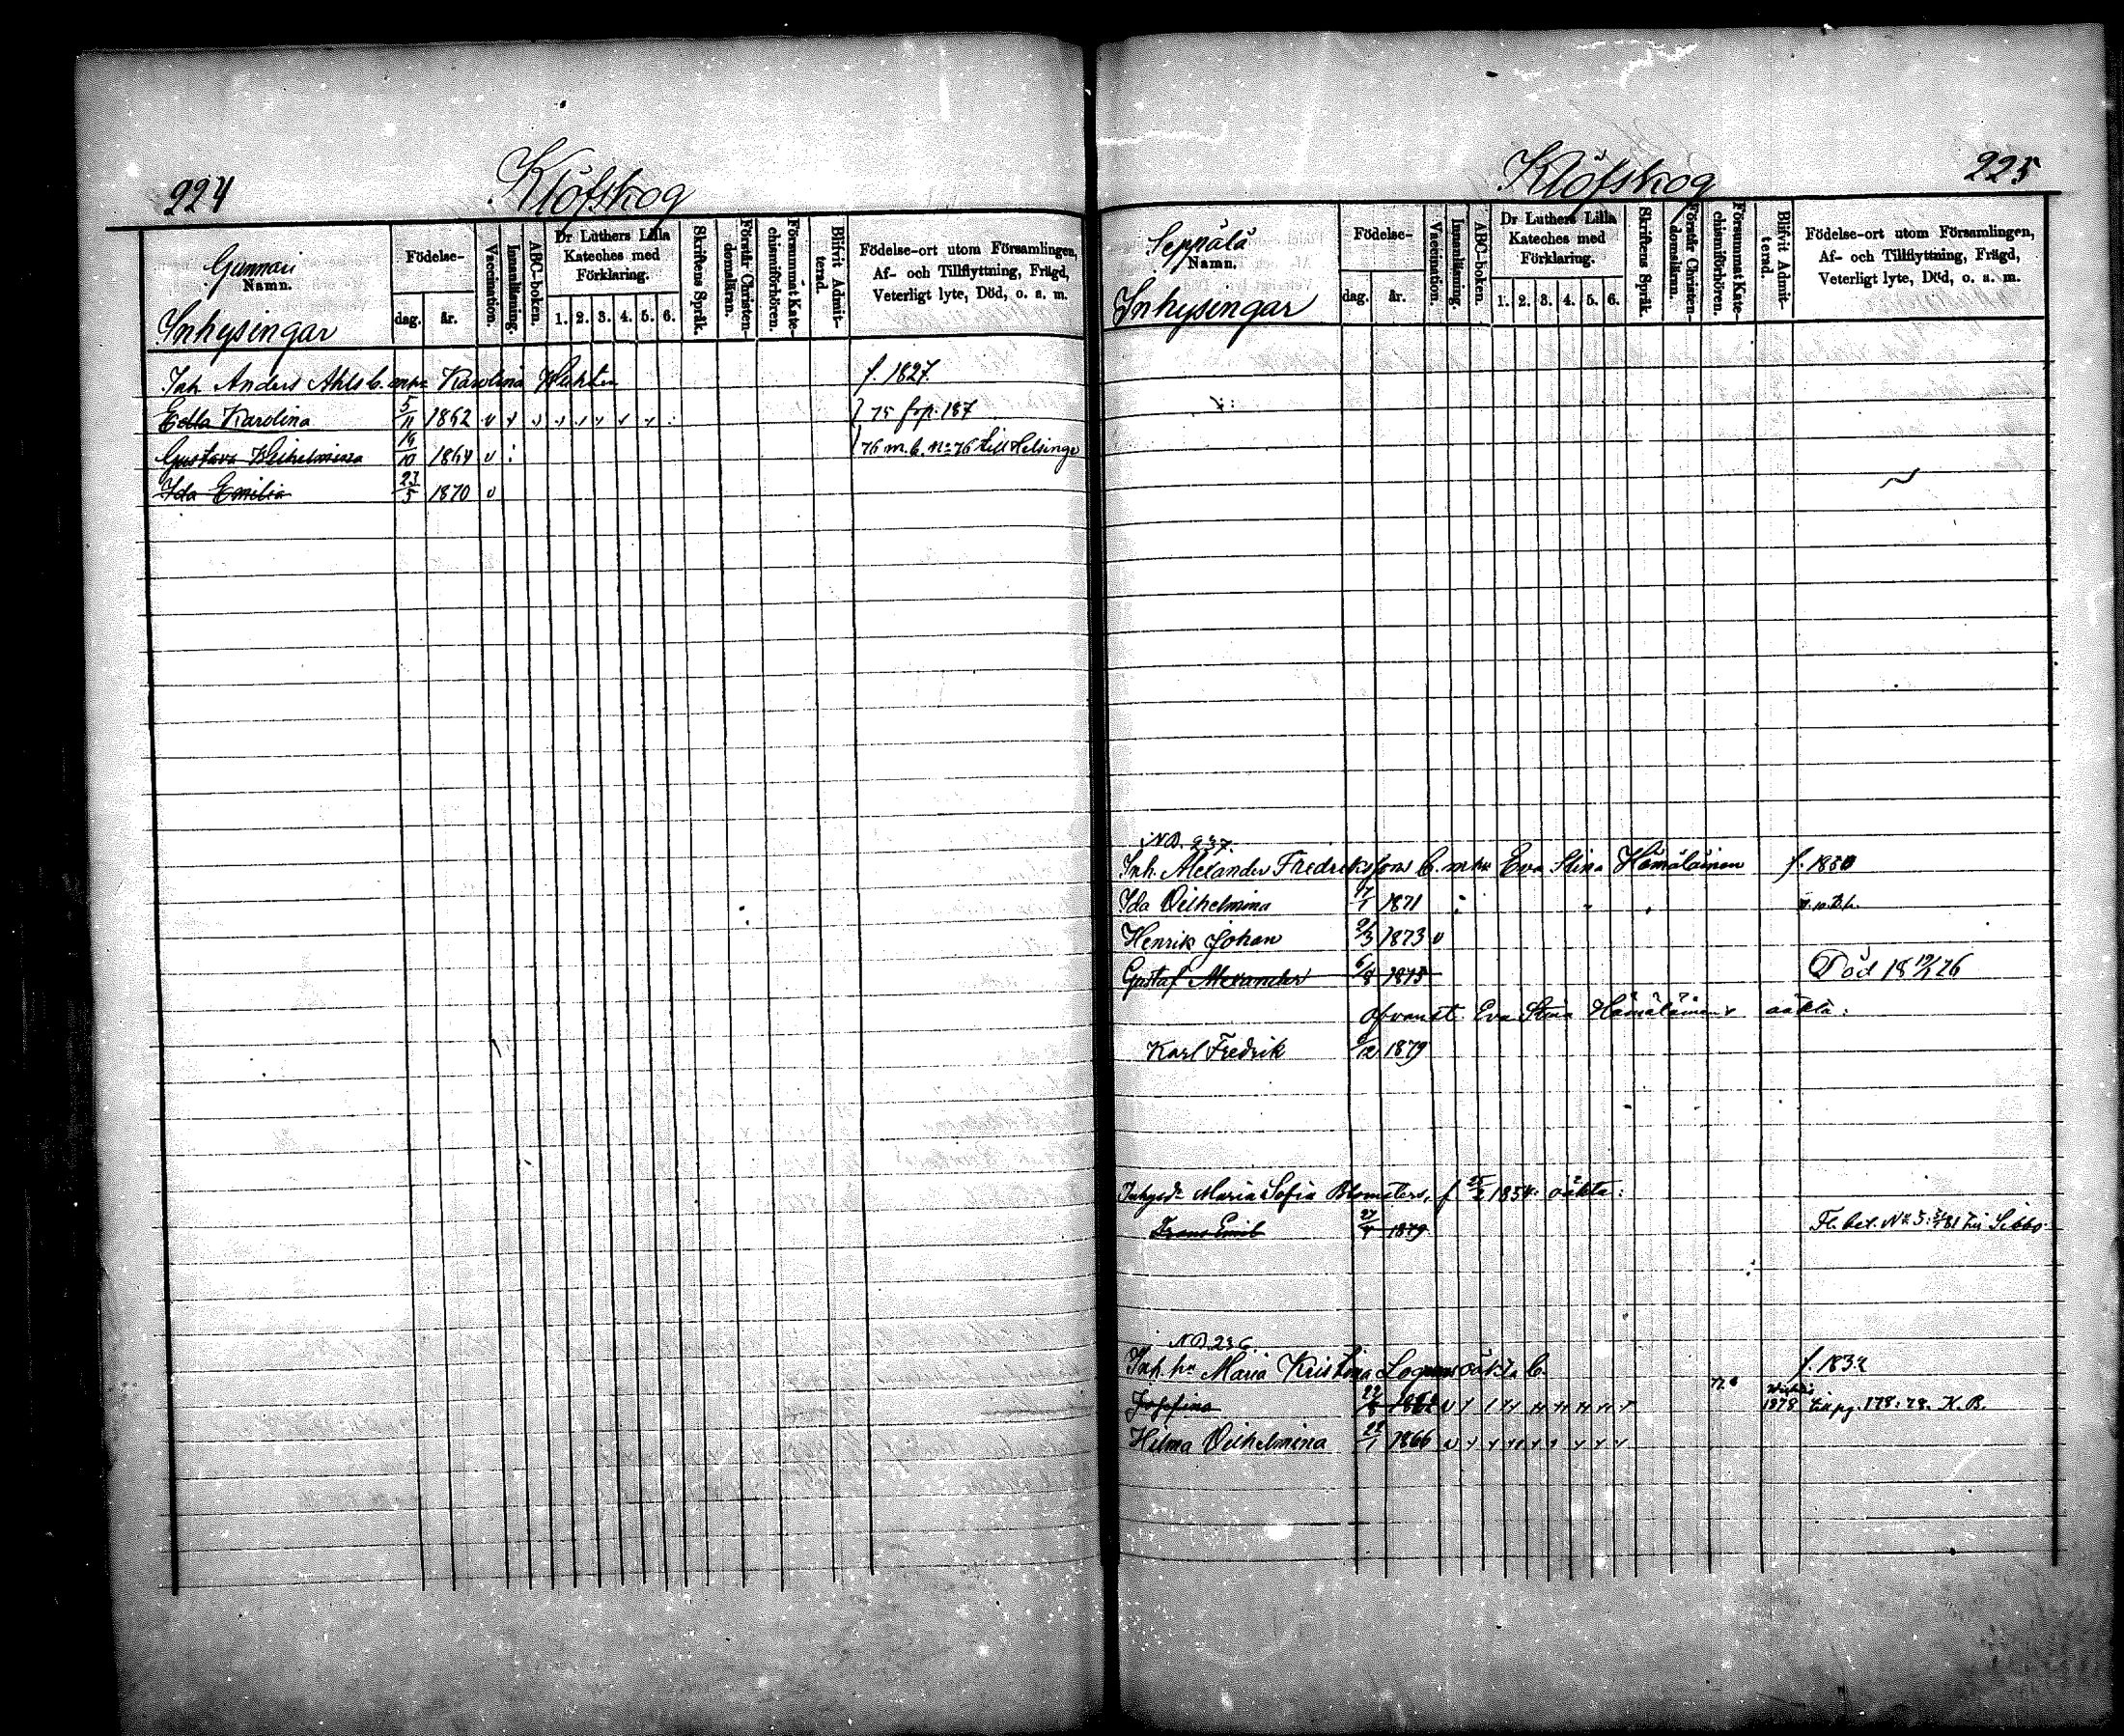 224
Klöfskog
Gunnari
Namn.
Inhysingar
Födelse-
dag.
år.
Vaccination.
Innanläsning.
ABC-boken.
Dr Luthers Lilla
Kateches med
Förklaring.
1. 2. 3. 4. 5. 6.
Skriftens Språk.
Förstår Christen-
domsläran.
Försummat Kate-
chismiförhören.
Blifvit Admit-
terad.
Födelse-ort utom Församlingen,
Af- och Tillflyttning, Frägd,
Veterligt lyte, Död, o. a. m.
Inh. Anders Ahls b. m. h:u Karolina f. 1827.
Edla Karolina 5/11 1862 75 frp. 187
Gustava Wilhelmina 1864 76 m. b. No 76 till Helsinge
Ida Emilia 23/5 1870
Klöfskog
225
Seppälä
Namn.
Inhysingar
Födelse-
dag.
år.
Vaccination.
Innanläsning.
ABC-boken.
Dr Luthers Lilla
Kateches med
Förklaring.
1. 2. 3. 4. 5. 6.
Skriftens Språk.
Förstår Christen-
domsläran.
Försummat Kate-
chismiförhören.
Blifvit Admit-
terad.
Födelse-ort utom Församlingen,
Af- och Tillflyttning, Frägd,
Veterligt lyte, Död, o. a. m.
NB. 237.
Inh. Alexander Fredrikssons b. m. h:u Eva Stina Hämäläinen f. 1830
Ida Vilhelmina 1871
Henrik Johan 9/3 1873
Gustaf Alexander 6/8 1875 Död 18 19/1 76
Ofvanst. Eva Stina Hämäläinens oäkta:
Karl Fredrik 1879
Inhysd. Maria Sofia Blomsters, f 1854. oäkta:
Frans Emil 27/4 1879 Fl. bet. No 5. 81 till Sibbo.
NB. 236.
Inh. h:n Maria Kristina oäkta b. f. 1832
Josefina 1878 till pg. 178. 78. K. B.
Hilma Vilhelmina 22/1 1866